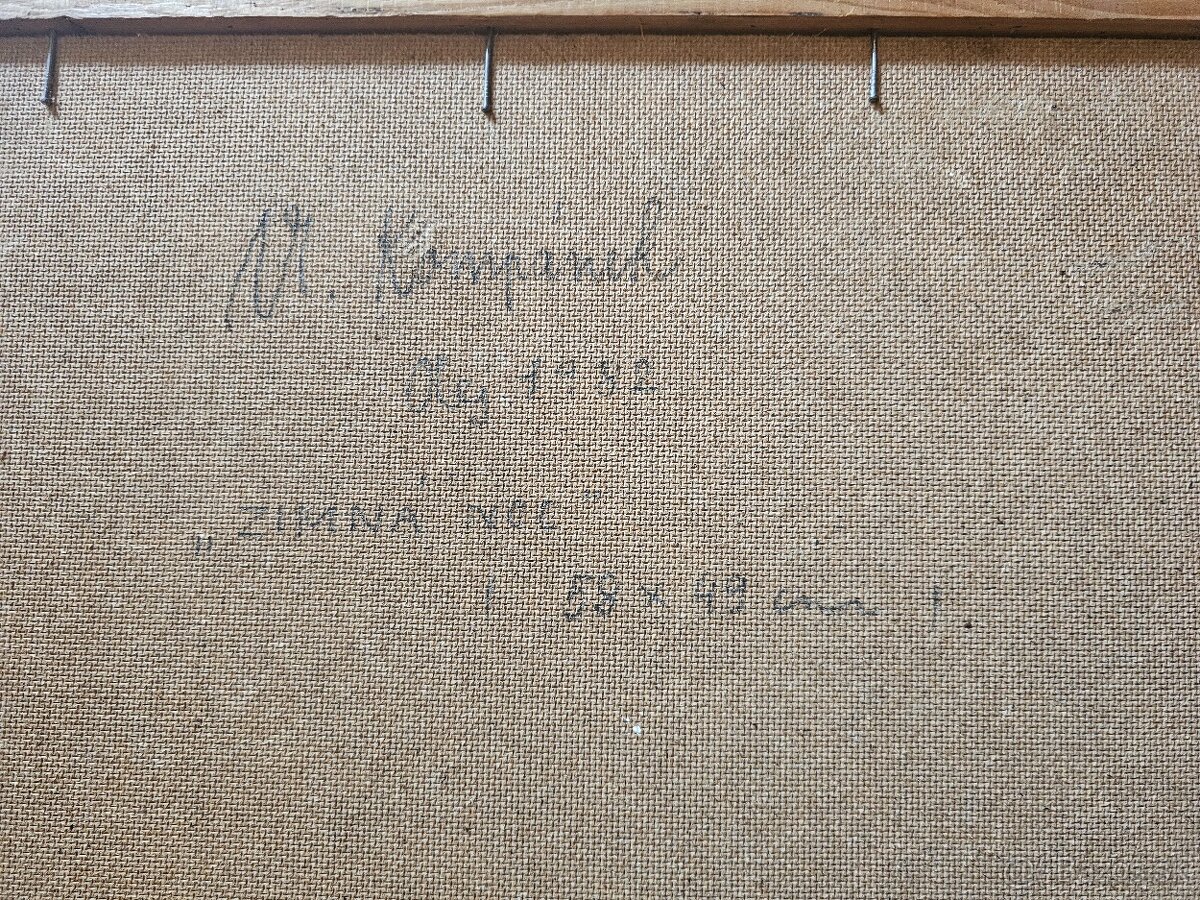 Vl. Kompánek
Olej 1982
„ZIMNÁ NOC"
/ 58 x 49 cm /